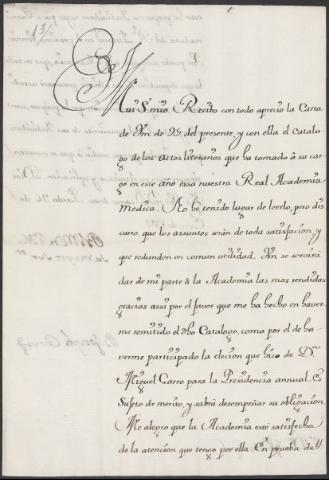 13
Mui S.r mio. Recibo con todo aprecio la Carta
de Vm. de 24. del presente, y con ella el Catalo-
go de los actos literarios que ha tomado à su car-
go en este año essa nuestra Real Academia
Medica. No he tenido lugar de leerlo, pero dis-
curro, que los assuntos serán de toda satisfacion, y
que redunden en comun utilidad. Vm. se servirà
dar de mi parte à la Academia las mas rendidas
gracias assi por el favor que me ha hecho en haver-
me remitido el dho Catalogo, como por el de ha-
verme participado la eleccion que hizo de D.n
Miguèl Carro para la Presidencia annual. Es
Sujeto de merito, y sabrà desempeñar su obligacion.
Me alegro que la Academia esté satisfecha
de la atencion que tengo por ella. En prueba de